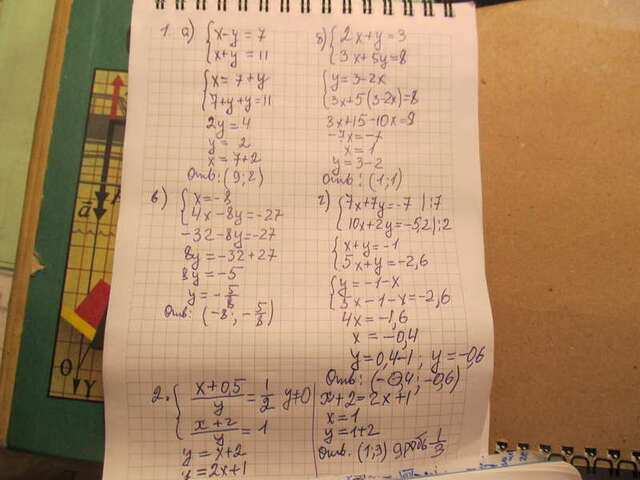 1. а) { x-y=7
x+y=11
{ x=7+y
7+y+y=11
2y=4
y=2
x=7+2
Отв: (9; 2)
б) { 2x+y=3
3x+5y=8
{ y=3-2x
3x+5(3-2x)=8
3x+15-10x=8
-7x=-7
x=1
y=3-2
Отв: (1; 1)
в) { x=-8
4x-8y=-27
-32-8y=-27
8y=-32+27
8y=-5
y=-5/8
Отв: (-8; -5/8)
г) { 7x+7y=-7 |:7
10x+2y=-5,2 |:2
{ x+y=-1
5x+y=-2,6
{ y=-1-x
5x-1-x=-2,6
4x=-1,6
x=-0,4
y=0,4-1; y=-0,6
Отв: (-0,4; -0,6)
2. { x+0,5/y=1/2 y≠0
x+2/y=1
y=x+2
y=2x+1
x+2=2x+1
x=1
y=1+2
Отв. (1; 3) дробь 1/3
a
O
Y